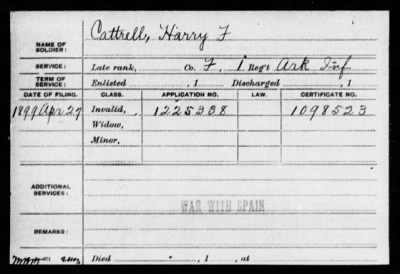 NAME OF SOLDIER: Cattrell, Harry F
SERVICE: Late rank, Co. F, 1 Reg't Ark Inf
TERM OF SERVICE: Enlisted , 1 Discharged , 1
DATE OF FILING. CLASS. APPLICATION NO. LAW. CERTIFICATE NO.
1899 Apr 27 Invalid, 1225338 1098523
Widow,
Minor,
ADDITIONAL SERVICES:
WAR WITH SPAIN
REMARKS:
Died , 1 , at